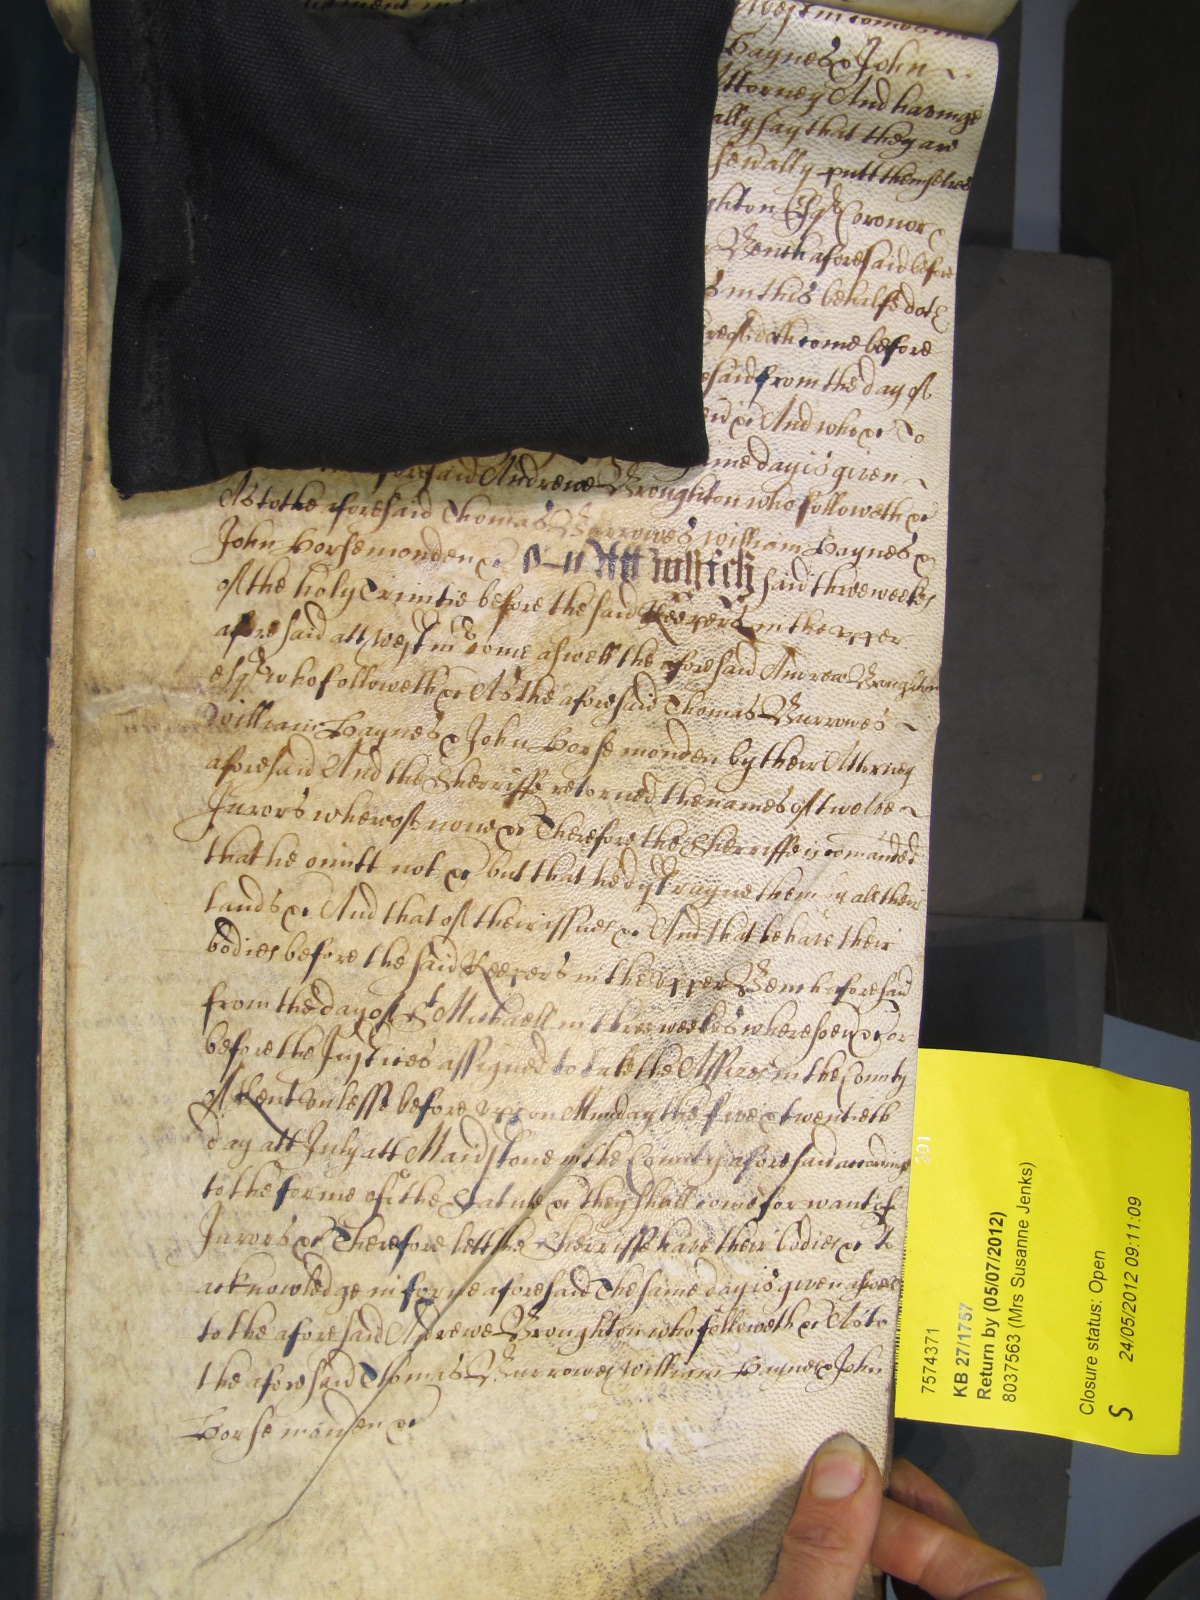 Haynes & John
Attorney And havinge
ally say that they are
senally putt themselves
ghton Esqr Coronor
Bench aforesaid before
in this behalfe doth
come before
said from the day of
And whe &c To
same day is given
aforesaid Andrewe Broughton who followeth &c
As to the aforesaid Thomas Burrowes William Haynes &
John Horsemonden &c Att which said three weekes
of the holy Trinitie before the said Keepers in the upper
aforesaid att Westmr come aswell the aforesaid Andrew Broughton
esqr who followeth &c As the aforesaid Thomas Burrowes
William Haynes & John Horsemonden by their Attorney
aforesaid And the Sherriffe retorned the names of twelve
Jurors whereof none &c Therefore the Sherriffe is comanded
that he omitt not &c but that he distrayne them by all their
lands &c And that of their issues &c And that he have their
bodies before the said Keepers in the upper Bench aforesaid
from the day of St Michaell in three weekes wheresoever &c or
before the Justices assigned to take the Assizes in the County
of Kent unlesse before uppon Munday the five & twentieth
day att July att Maidstone in the County aforesaid according
to the forme of the Statute &c they shall come for want of
Jurors &c Therefore lett the Sherriffe have their bodies &c To
acknowledge in forme aforesaid The same day is given aswell
to the aforesaid Andrewe Broughton who followeth &c As to
the aforesaid Thomas Burrowes William Haynes & John
Horsemonden &c
7574371
KB 27/1757
Return by (05/07/2012)
8037563 (Mrs Susanne Jenks)
Closure status: Open
S 24/05/2012 09:11:09